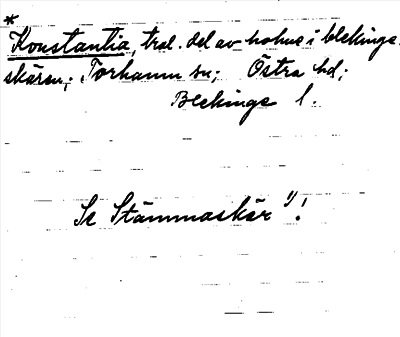 *
Konstantia, trol. del av holme i blekinge-
skären; Torhamn sn; Östra hd;
Blekinge l.
Se Stämmaskär 1)!